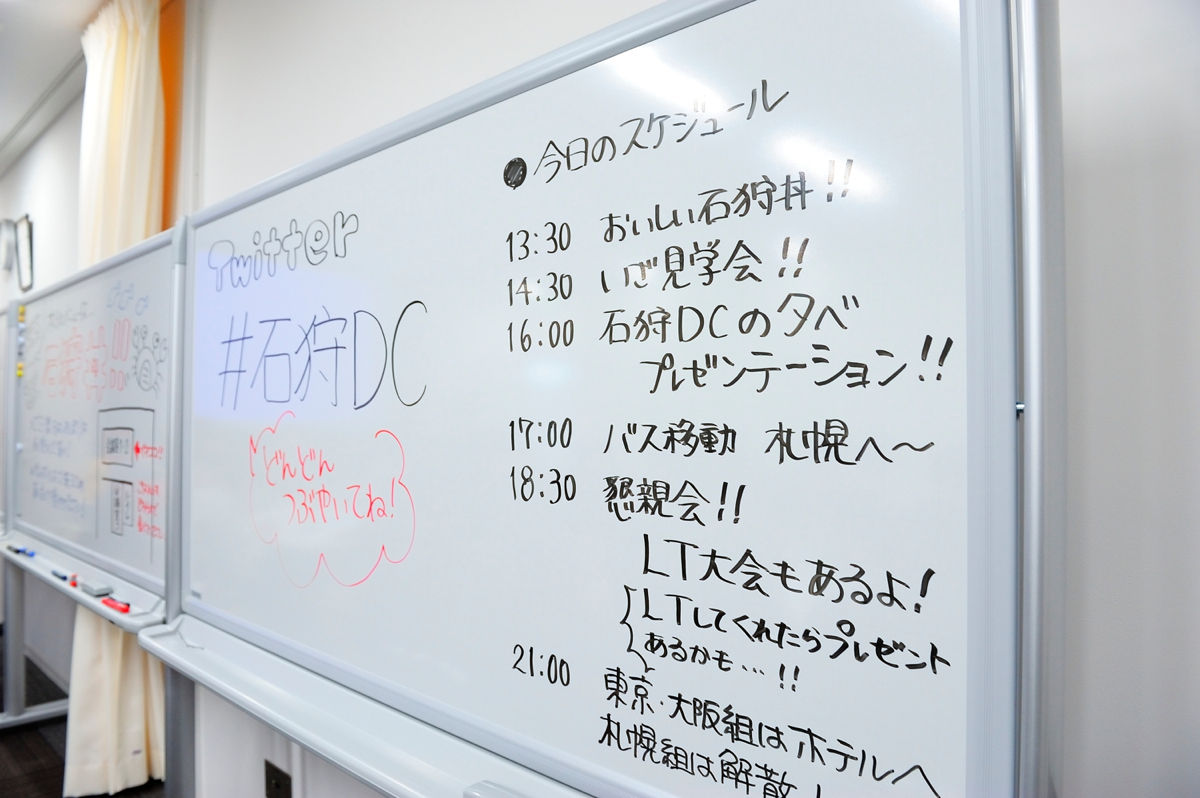 石狩丼!!!
Twitter
#石狩DC
どんどん
つぶやいてね!
●今日のスケジュール
13:30 おいしい石狩丼!!
14:30 いざ見学会!!
16:00 石狩DCの夕べ
プレゼンテーション!!
17:00 バス移動 札幌へ〜
18:30 懇親会!!
LT大会もあるよ!
LTしてくれたらプレゼント
あるかも…!!
21:00 東京・大阪組はホテルへ
札幌組は解散